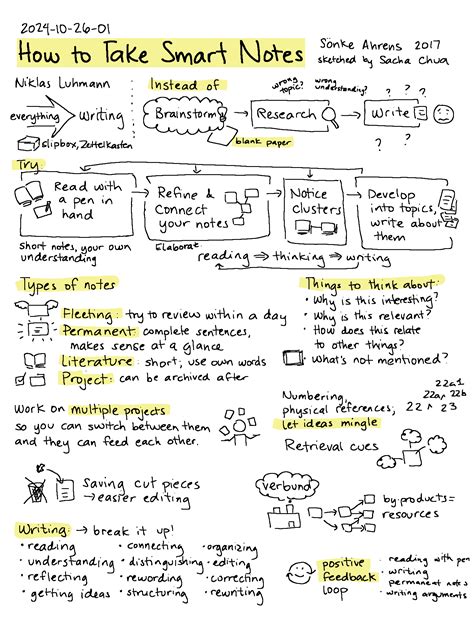 2024-10-26-01
How to Take Smart Notes
Sönke Ahrens 2017
sketched by Sacha Chua
Niklas Luhmann
everything → writing
slipbox, Zettelkasten
Instead of
Brainstorm
blank paper
wrong topic?
Research
wrong understanding?
Write
? ? ?
? ?
Try:
Read with
a pen in
hand
Short notes, your own
understanding
Refine &
Connect
your notes
Elaborat
Notice
clusters
Develop
into topics,
write about
them
reading → thinking → writing
Types of notes
Fleeting: try to review within a day
Permanent: complete sentences,
makes sense at a glance
Literature: short, use own words
Project: can be archived after
Things to think about:
• Why is this interesting?
• Why is this relevant?
• How does this relate
to other things?
• What's not mentioned?
Work on multiple projects
so you can switch between them
and they can feed each other.
Numbering,
physical references,
let ideas mingle
22a1
22a 22b
22 23
Retrieval cues
Saving cut pieces
→ easier editing
verbund
by-products=
resources
Writing: → break it up!
• reading
• understanding
• reflecting
• getting ideas
• connecting
• distinguishing
• rewording
• structuring
• organizing
• editing
• correcting
• rewriting
positive
feedback
loop
- reading with pen
- writing
permanent notes
- writing arguments